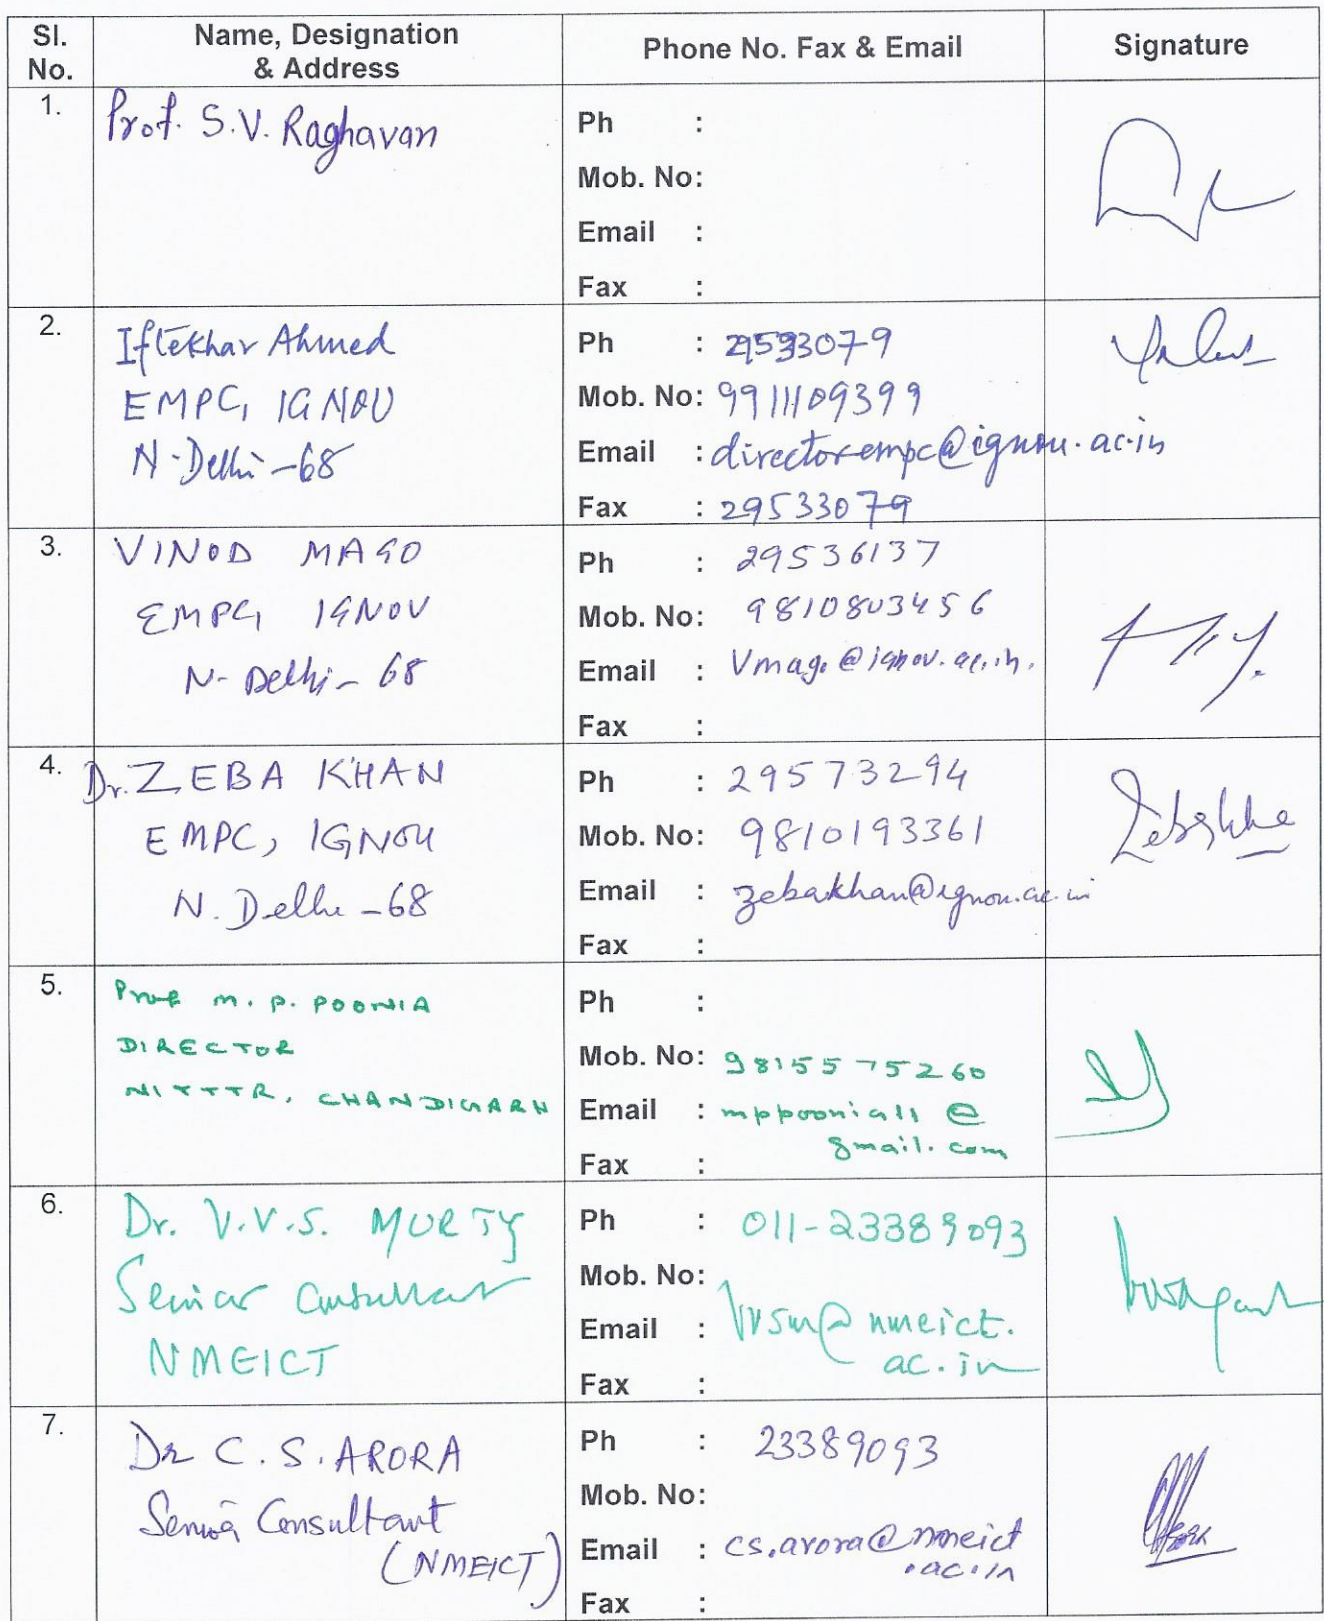 Sl. No. Name, Designation & Address Phone No. Fax & Email Signature
1. Prof. S.V. Raghavan
Ph :
Mob. No:
Email :
Fax :
2. Iftekhar Ahmed
EMPC, IGNOU
N. Delhi-68
Ph : 29533079
Mob. No: 9911109399
Email : directorempc@ignou.ac.in
Fax : 29533079
3. VINOD MAGO
EMPC, IGNOU
N- Delhi- 68
Ph : 29536137
Mob. No: 9810803456
Email : Vmago@ignou.ac.in.
Fax :
4. Dr. ZEBA KHAN
EMPC, IGNOU
N. Delhi -68
Ph : 29573294
Mob. No: 9810193361
Email : zebakhan@ignou.ac.in
Fax :
5. Prof M. P. POONIA
DIRECTOR
NITTTR, CHANDIGARH
Ph :
Mob. No: 9815575260
Email : mppoonia11@
gmail.com
Fax :
6. Dr. V.V.S. MURTY
Senior Consultant
NMEICT
Ph : 011-23389093
Mob. No:
Email : vvsm@nmeict.
ac.in
Fax :
7. Dr C. S. ARORA
Senior Consultant
(NMEICT)
Ph : 23389093
Mob. No:
Email : cs.arora@nmeict
.ac.in
Fax :